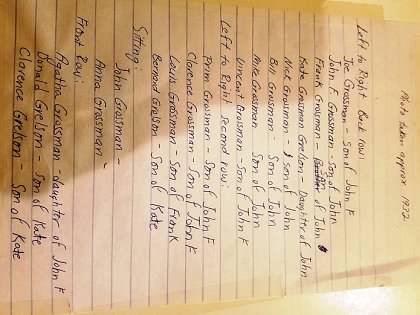 Photo taken approx. 1932
Left to Right Back row:
Joe Grossman - Son of John F
John F. Grossman - Son of John
Frank Grossman - Son of John
Kate Grossman Grelson - Daughter of John
Nick Grossman - son of John
Bill Grossman - Son of John
Mike Grossman - Son of John
Vincent Grossman - Son of John F
Left to Right Second row:
Prim Grossman - Son of John F
Clarence Grossman - Son of John F
Louis Grossman - Son of Frank
Bernard Grelson - Son of Kate
Sitting:
John Grossman -
Anna Grossman -
Front Row:
Agatha Grossman - daughter of John F
Donald Grelson - Son of Kate
Clarence Grelson - Son of Kate